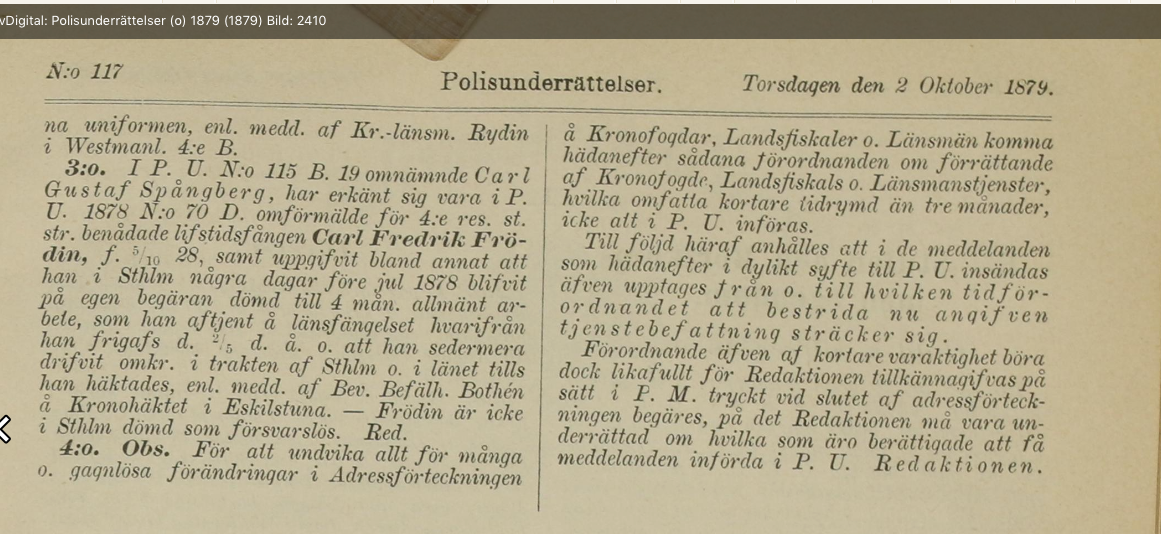 vDigital: Polisunderrättelser (o) 1879 (1879) Bild: 2410
N:o 117
Polisunderrättelser.
Torsdagen den 2 Oktober 1879.
na uniformen, enl. medd. af Kr.-länsm. Rydin
i Westmanl. 4:e B.
3:o. I P. U. N:o 115 B. 19 omnämnde Carl
Gustaf Spångberg, har erkänt sig vara i P.
U. 1878 N:o 70 D. omförmälde för 4:e res. st.
str. benådade lifstidsfången Carl Fredrik Frö-
din, f. 5/10 28, samt uppgifvit bland annat att
han i Sthlm några dagar före jul 1878 blifvit
på egen begäran dömd till 4 mån. allmänt ar-
bete, som han aftjent å länsfängelset hvarifrån
han frigafs d. 2/5 d. å. o. att han sedermera
drifvit omkr. i trakten af Sthlm o. i länet tills
han häktades, enl. medd. af Bev. Befälh. Bothén
å Kronohäktet i Eskilstuna. — Frödin är icke
i Sthlm dömd som försvarslös. Red.
4:o. Obs. För att undvika allt för många
o. gagnlösa förändringar i Adressförteckningen
å Kronofogdar, Landsfiskaler o. Länsmän komma
hädanefter sådana förordnanden om förrättande
af Kronofogde, Landsfiskals o. Länsmanstjenster,
hvilka omfatta kortare tidrymd än tre månader,
icke att i P. U. införas.
Till följd häraf anhålles att i de meddelanden
som hädanefter i dylikt syfte till P. U. insändas
äfven upptages från o. till hvilken tid för-
ordnandet att bestrida nu angifven
tjenstebefattning sträcker sig.
Förordnande äfven af kortare varaktighet böra
dock likafullt för Redaktionen tillkännagifvas på
sätt i P. M. tryckt vid slutet af adressförteck-
ningen begäres, på det Redaktionen må vara un-
derrättad om hvilka som äro berättigade att få
meddelanden införda i P. U. Redaktionen.